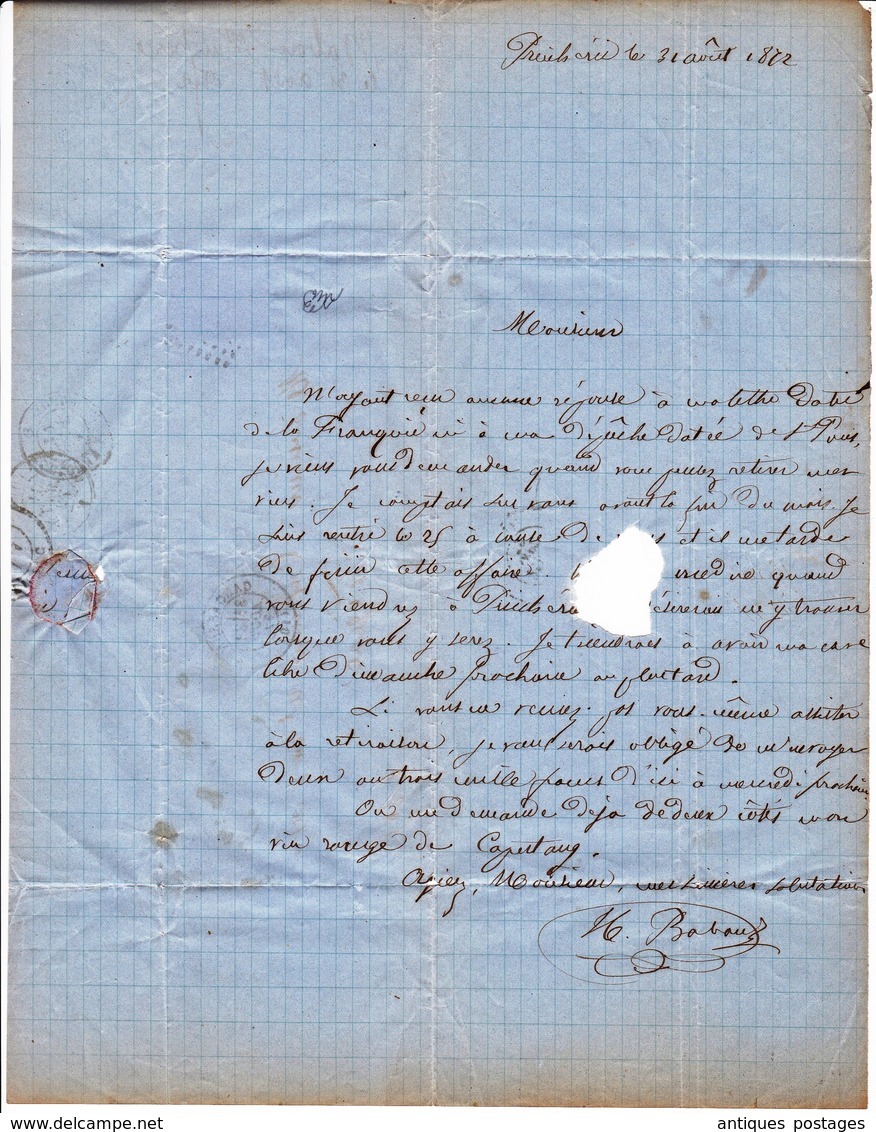 Puichéric le 31 août 1872
Monsieur
N'ayant reçu aucune réponse à ma lettre datée
de la Franqui ni à ma dépêche datée de St Pons,
je viens vous demander quand vous pensez retirer mes
vins. Je comptais sur vous avant la fin du mois. Je
suis rentré le 25 à cause de et il me tarde
de finir cette affaire. me dire quand
vous viendrez à Puichéric désirerais m'y trouver
lorsque vous y serez. Je tiendrais à avoir ma cave
libre Dimanche prochain au plus tard.
Si vous ne venez pas vous-même assister
à la retiraison, je vous serais obligé de m'envoyer
deux ou trois mille francs d'ici à mercredi prochain
On me demande déjà de deux côtés mon
vin rouge de Capestang.
Agréez, Monsieur, mes sincères salutations
H. Babou
antiques postages